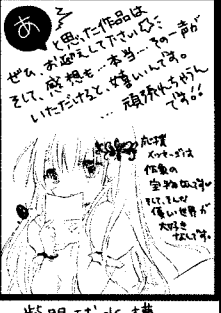 あ
と思った作品は
ぜひ、お迎えして下さい
そして、感想も…本当…その一声が
いただけると、嬉しいんです。
…頑張れちゃうん
です!!
応援
メッセージは
作家の
宝物なんです
そして、そんな
優しい世界が
大好き
なんです。